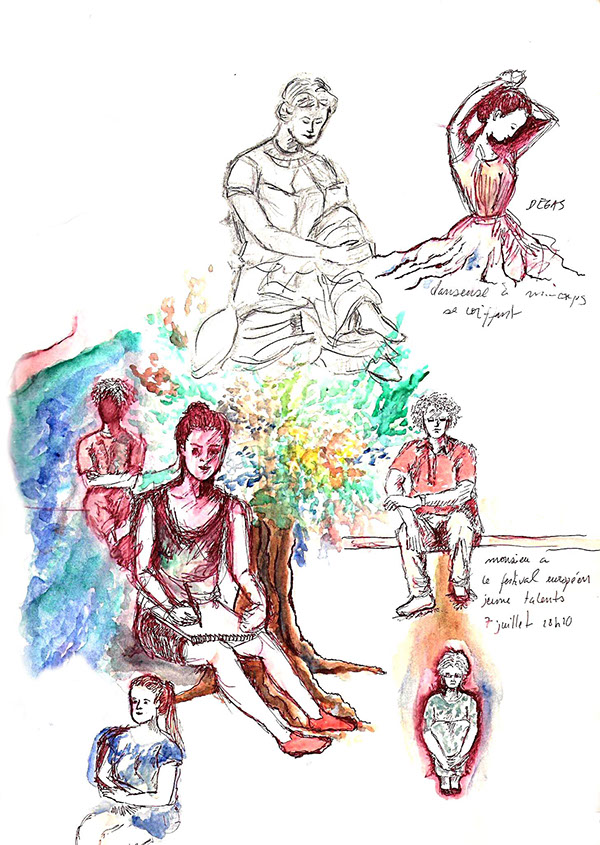 DEGAS
danseuse à mi-corps
se coiffant
monsieur a
le festival européen
jeune talents
7 juillet 12h30